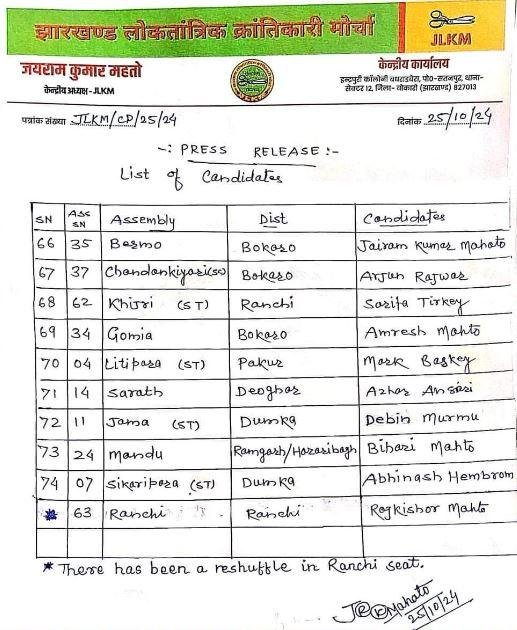 झारखण्ड लोकतांत्रिक क्रांतिकारी मोर्चा
JLKM
जयराम कुमार महतो
केन्द्रीय अध्यक्ष - JLKM
केन्द्रीय कार्यालय
इन्दपुरी कॉलोनी बाधराडेरा, पो०-सतनपुर, थाना-
सेक्टर 12, जिला- बोकारो (झारखण्ड) 827013
पत्रांक संख्या JLKM/CP/25/24
दिनांक 25/10/24
-: PRESS RELEASE:-
List of Candidates
SN ASS SN Assembly Dist Candidates
66 35 Bermo Bokaro Jairam Kumar Mahato
67 37 Chandankiyari(SC) Bokaro Arjun Rajwar
68 62 Khijri (ST) Ranchi Sarita Tirkey
69 34 Gomia Bokaro Amresh Mahto
70 04 Litipara (ST) Pakur Mark Baskey
71 14 Sarath Deoghar Azhar Ansari
72 11 Jama (ST) Dumka Debin Murmu
73 24 Mandu Ramgarh/Hazaribagh Bihari Mahto
74 07 Sikaripara (ST) Dumka Abhinash Hembrom
* 63 Ranchi Ranchi Rajkishor Mahto
* There has been a reshuffle in Ranchi seat.
Mahato
25/10/24